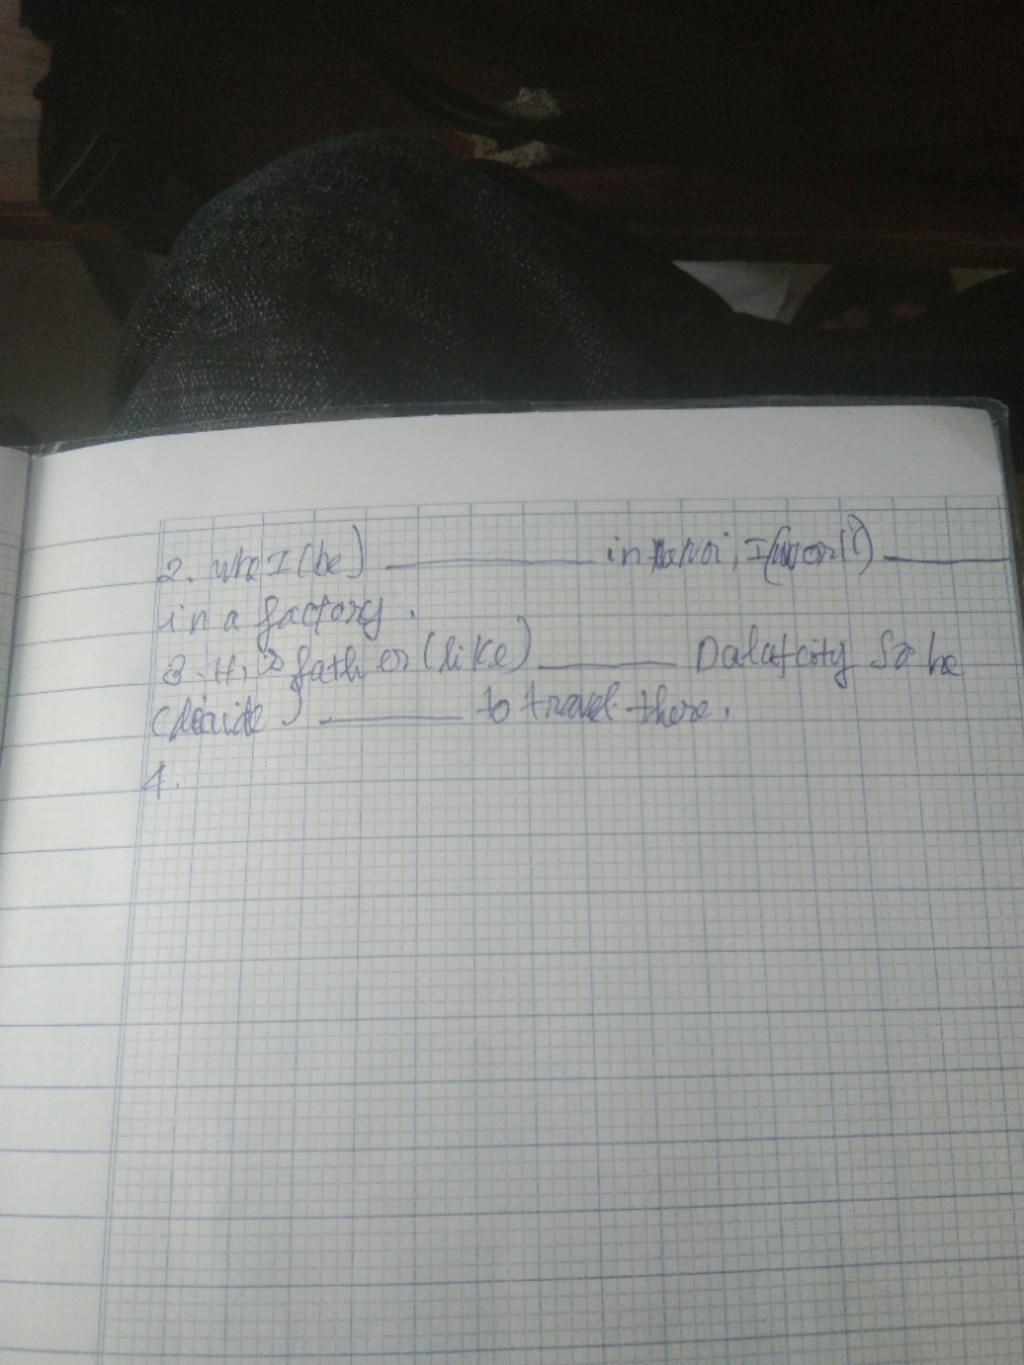 2. whe I (be) ________ in HaNoi, I (work) ________
in a factory.
3. His father (like) ________ Dalat city so he
(decide) ________ to travel there.
4.